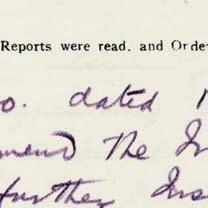 Reports were read. and Orde
o. dated 1
mend The In
further Ins